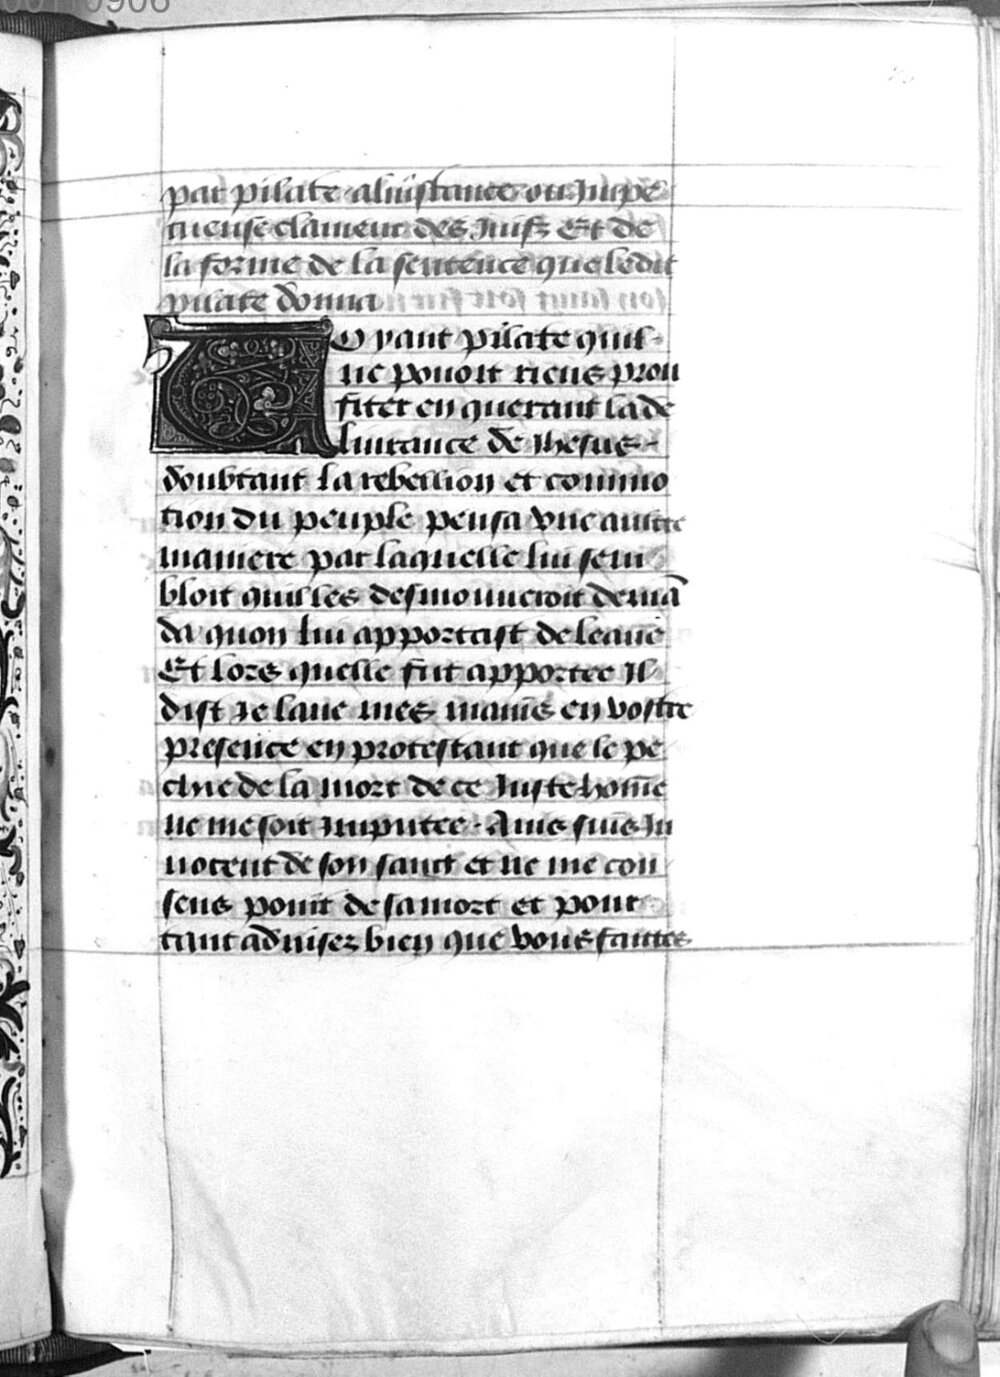 par pilate a linstance ou Jmpe
tueuse clameur des Juifz Et de
la forme de la sentence que ledit
pilate donna
Voyant pilate quil
ne pouoit riens prou
fiter en querant la de
liurance de ihesus
doubtant la rebellion et commo
tion du peuple pensa vne aultre
maniere par laquelle lui sem
bloit quil les desmouueroit demā
da quon lui apportast de leaue
Et lors quelle fut apportee Il
dist Je laue mes mains en vostre
presence en protestant que le pe
chie de la mort de ce Juste hom̄e
ne me soit Jmputee · Ains suis Jn
nocent de son sang et ne me con
sens point de sa mort et pour
tant aduisez bien que vous faittes